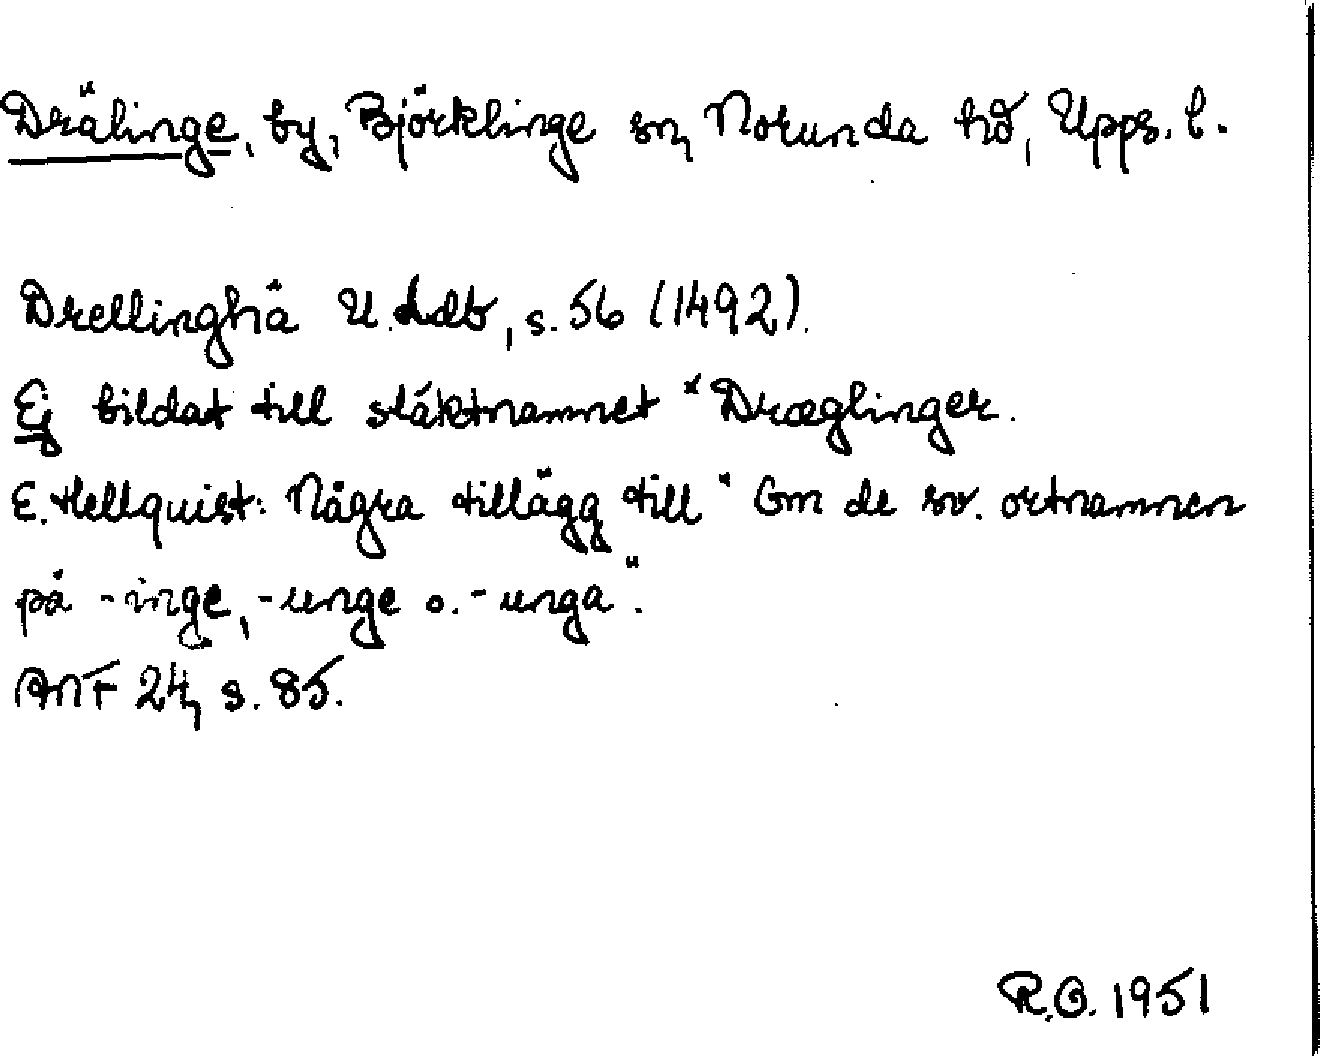 Drälinge, by, Björklinge sn, Norunda hd, Upps. l.
Drellinghä U. Ldb, s. 56 (1492).
Ej bildat till släktnamnet *Dræglinger.
E. Hellquist: Några tillägg till "Om de sv. ortnamnen
på -inge, -unge o. -unga".
ANF 24, s. 85.
R.O. 1951